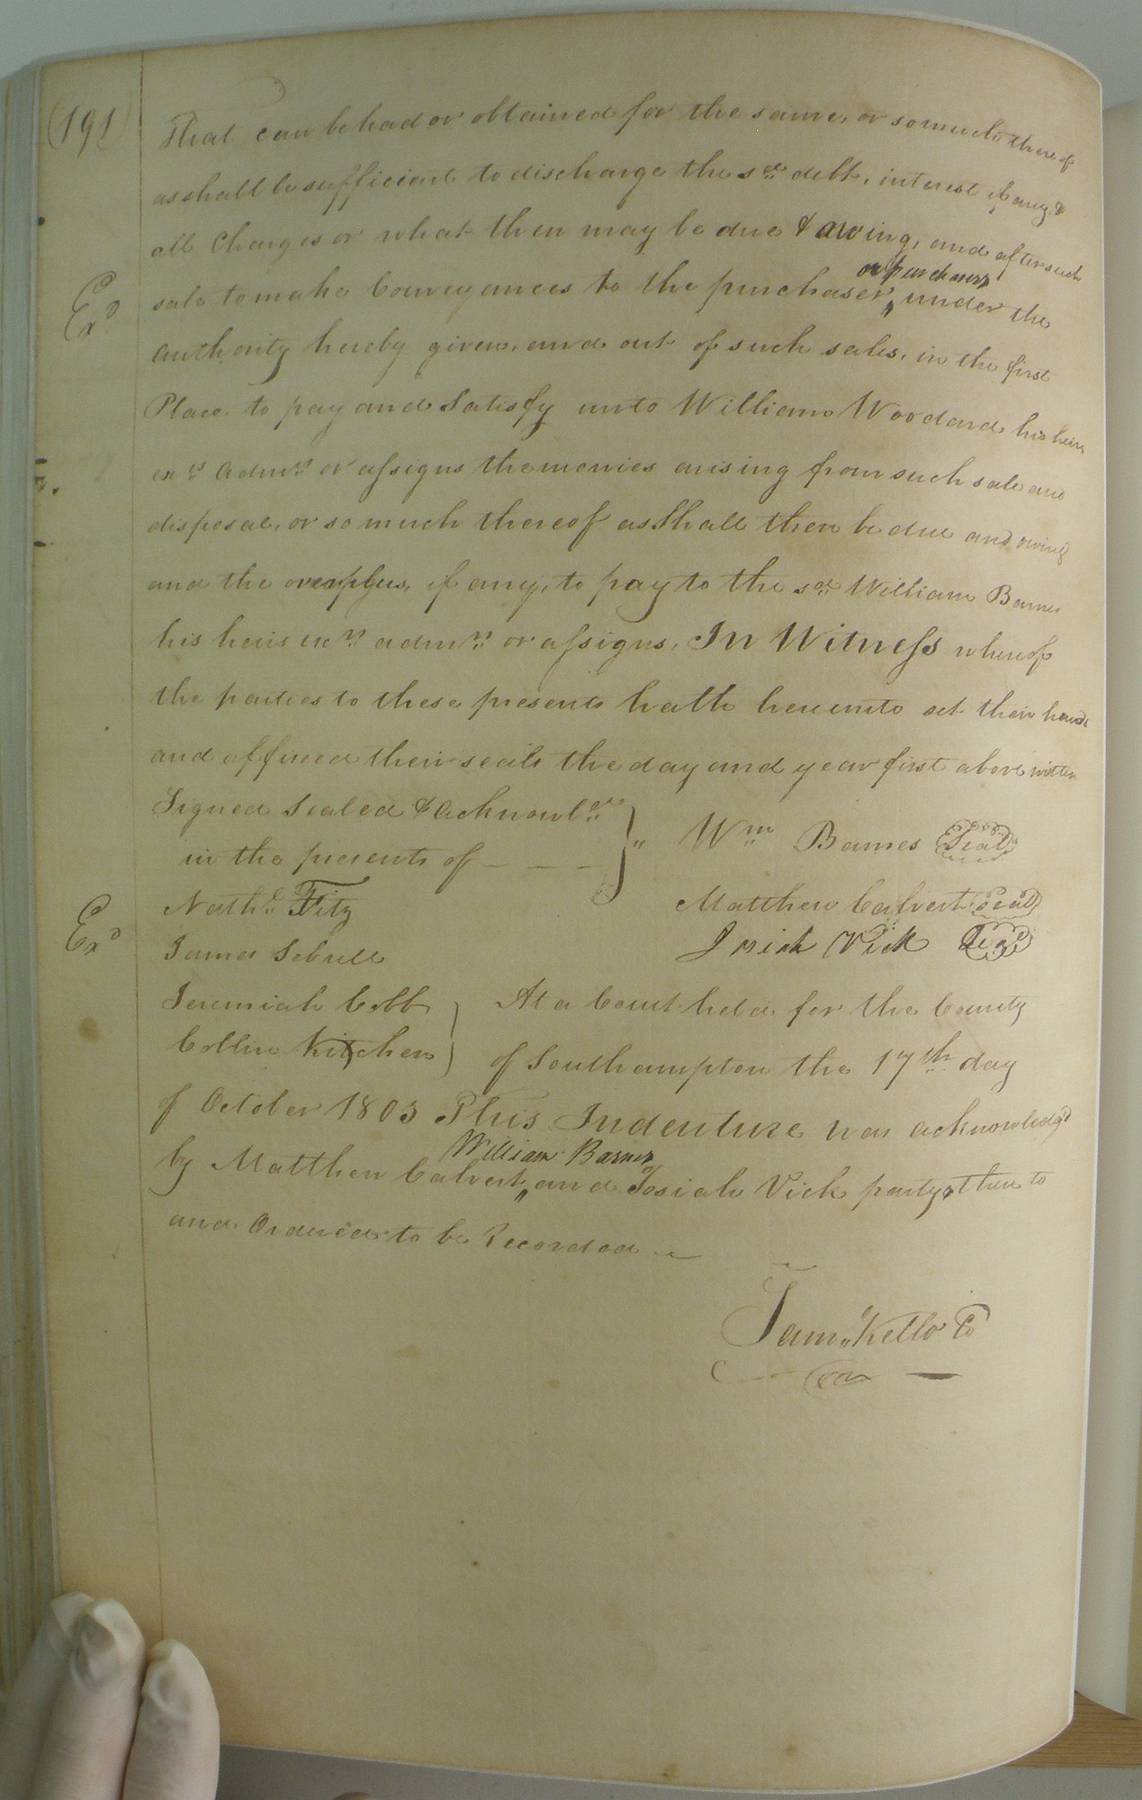 (191)
That can be had or obtained for the same, or so much thereof
as shall be sufficient to discharge the sd. debt, interest if any &
all Charges or what then may be due & owing, and after such
Exd
or purchasers
sale to make Conveyances to the purchaser, under the
authority hereby given, and out of such sales, in the first
Place to pay and Satisfy unto William Woodard his heirs
exrs. admrs. or assigns the monies arising from such sale and
disposal, or so much thereof as Shall then be due and owing
and the overplus, if any, to pay to the sd. William Barnes
his heirs exrs. admrs. or assigns. In Witness whereof
the parties to these presents hath hereunto set their hands
and affixed their seals the day and year first above written
Signed Sealed & acknowled.
in the presents of — — — } " Wm. Barnes Seal
Nathl. Fitz Matthew Calvert Seal
Exd
James Sebrell Josiah Vick Seal
Jeremiah Cobb } At a Court held for the County
Collin Kitchen } of Southampton the 17th. day
of October 1803 This Indenture was acknowledgd
William Barnes
by Matthew Calvert, and Josiah Vick partys there to
and Ordered to be Recorded —
Saml. Kello C